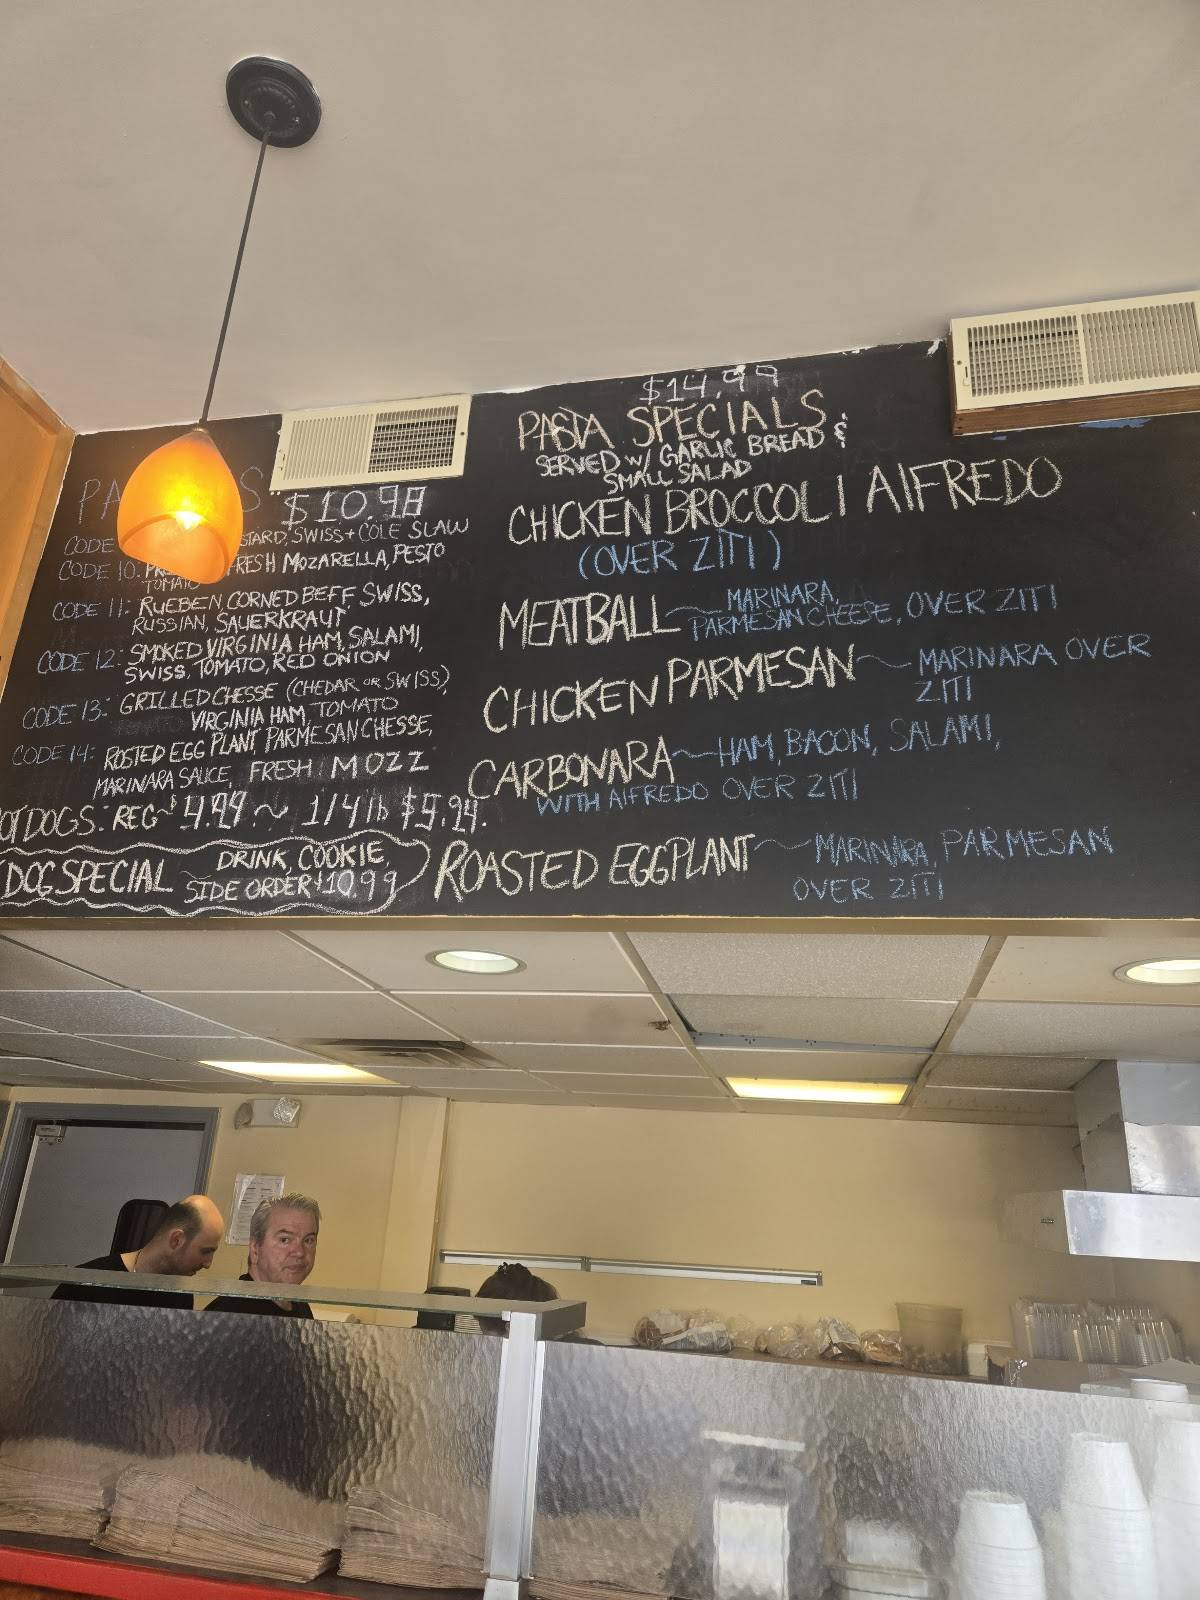 $10.98
CODE STARD, SWISS + COLE SLAW
CODE 10: FRESH MOZARELLA, PESTO
TOMATO
CODE 11: RUEBEN, CORNED BEFF SWISS,
RUSSIAN, SAUERKRAUT
CODE 12: SMOKED VIRGINIA HAM, SALAMI,
SWISS, TOMATO, RED ONION
CODE 13: GRILLED CHESSE (CHEDAR OR SWISS),
VIRGINIA HAM, TOMATO
CODE 14: ROSTED EGG PLANT PARMESAN CHESSE,
MARINARA SAUCE, FRESH MOZZ
OT DOGS: REG~ $4.99 ~ 1/4 lb $5.94.
DOG SPECIAL ~ DRINK, COOKIE,
SIDE ORDER $10.99
$14.99
PASTA SPECIALS
SERVED W/ GARLIC BREAD &
SMALL SALAD
CHICKEN BROCCOLI AlFREDO
(OVER ZITI)
MEATBALL ~ MARINARA,
PARMESAN CHEESE, OVER ZITI
CHICKEN PARMESAN ~ MARINARA OVER
ZITI
CARBONARA ~ HAM, BACON, SALAMI,
WITH AlFREDO OVER ZITI
ROASTED EGGPLANT ~ MARINARA, PARMESAN
OVER ZITI